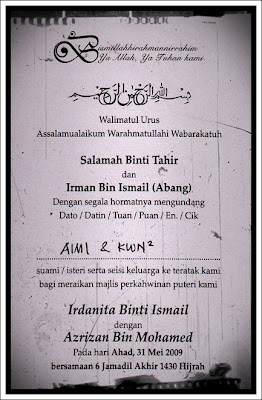 Bismillahhirahmannirrahim
Ya Allah, Ya Tuhan kami
بسم الله الرحمن الرحيم
Walimatul Urus
Assalamualaikum Warahmatullahi Wabarakatuh
Salamah Binti Tahir
dan
Irman Bin Ismail (Abang)
Dengan segala hormatnya mengundang
Dato / Datin / Tuan / Puan / En. / Cik
AIMI & KWN²
suami / isteri serta seisi keluarga ke teratak kami
bagi meraikan majlis perkahwinan puteri kami
Irdanita Binti Ismail
dengan
Azrizan Bin Mohamed
Pada hari Ahad, 31 Mei 2009
bersamaan 6 Jamadil Akhir 1430 Hijrah